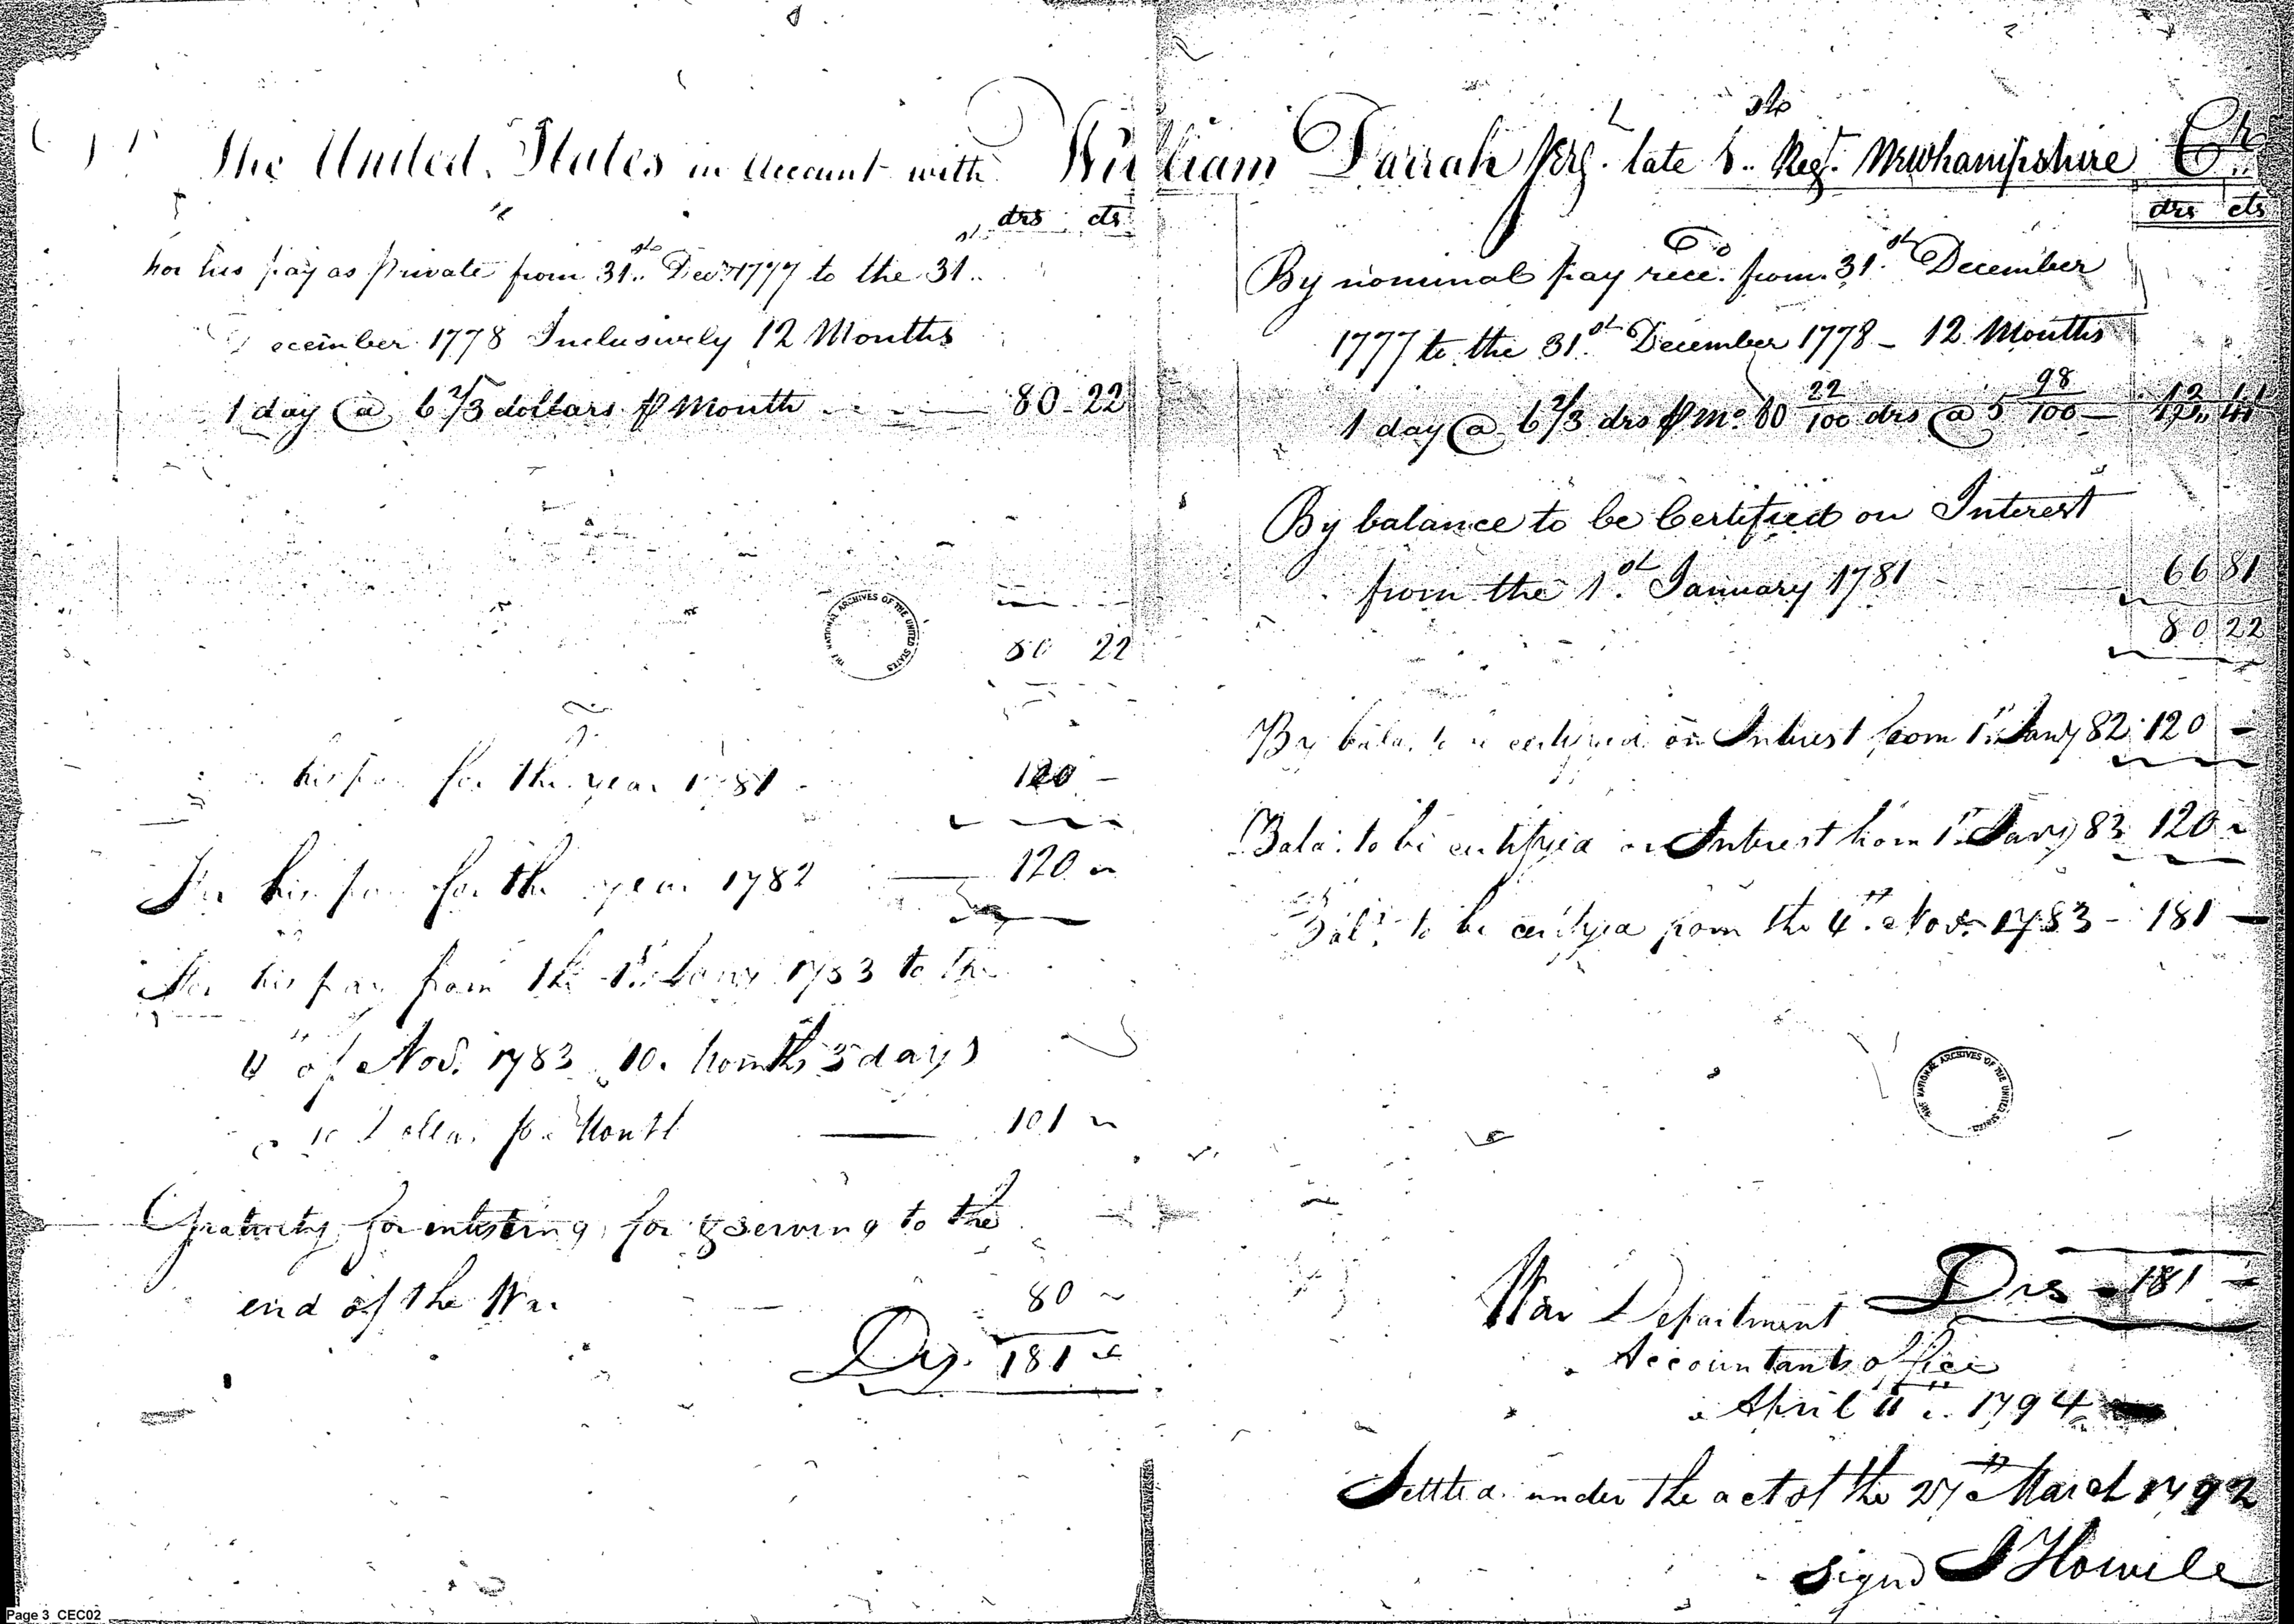 The United States in Account with William Darrah Serg. late 1st Regt. Newhampshire Cr
drs cts
For his pay as Private from 31st Decr. 1777 to the 31st
December 1778 Inclusively 12 Months
1 day @ 6 2/3 dollars ⅌ Month 80 22
80 22
his pay for the year 1781 120 -
For his pay for the year 1782 120
For his pay from the 1st Jany 1783 to the
4th of Nov. 1783 10 Months 3 days
10 Dollars per Month 101
Gratuity for inlisting for & serving to the
end of the War 80
Drs. 181
drs cts
By nominal pay reced. from 31st December
1777 to the 31st December 1778 - 12 Months
1 day @ 6 2/3 drs ⅌ Mo. 80 22/100 drs @ 5 98/100 -
By balance to be Certified on Interest
from the 1st January 1781 66 81
80 22
By bala. to be certifyed on Interest from 1st Jany 82 120 -
Bala: to be certifyed on Interest from 1st Jany 83 120
Bala. to be certifyed from the 4th Nov. 1783 - 181 -
Drs 181 -
War Department
Accountants office
April 11th 1794
Settled under the act of the 27th March 1792
signd J Howell
THE NATIONAL ARCHIVES OF THE UNITED STATES
THE NATIONAL ARCHIVES OF THE UNITED STATES
Page 3 CEC02